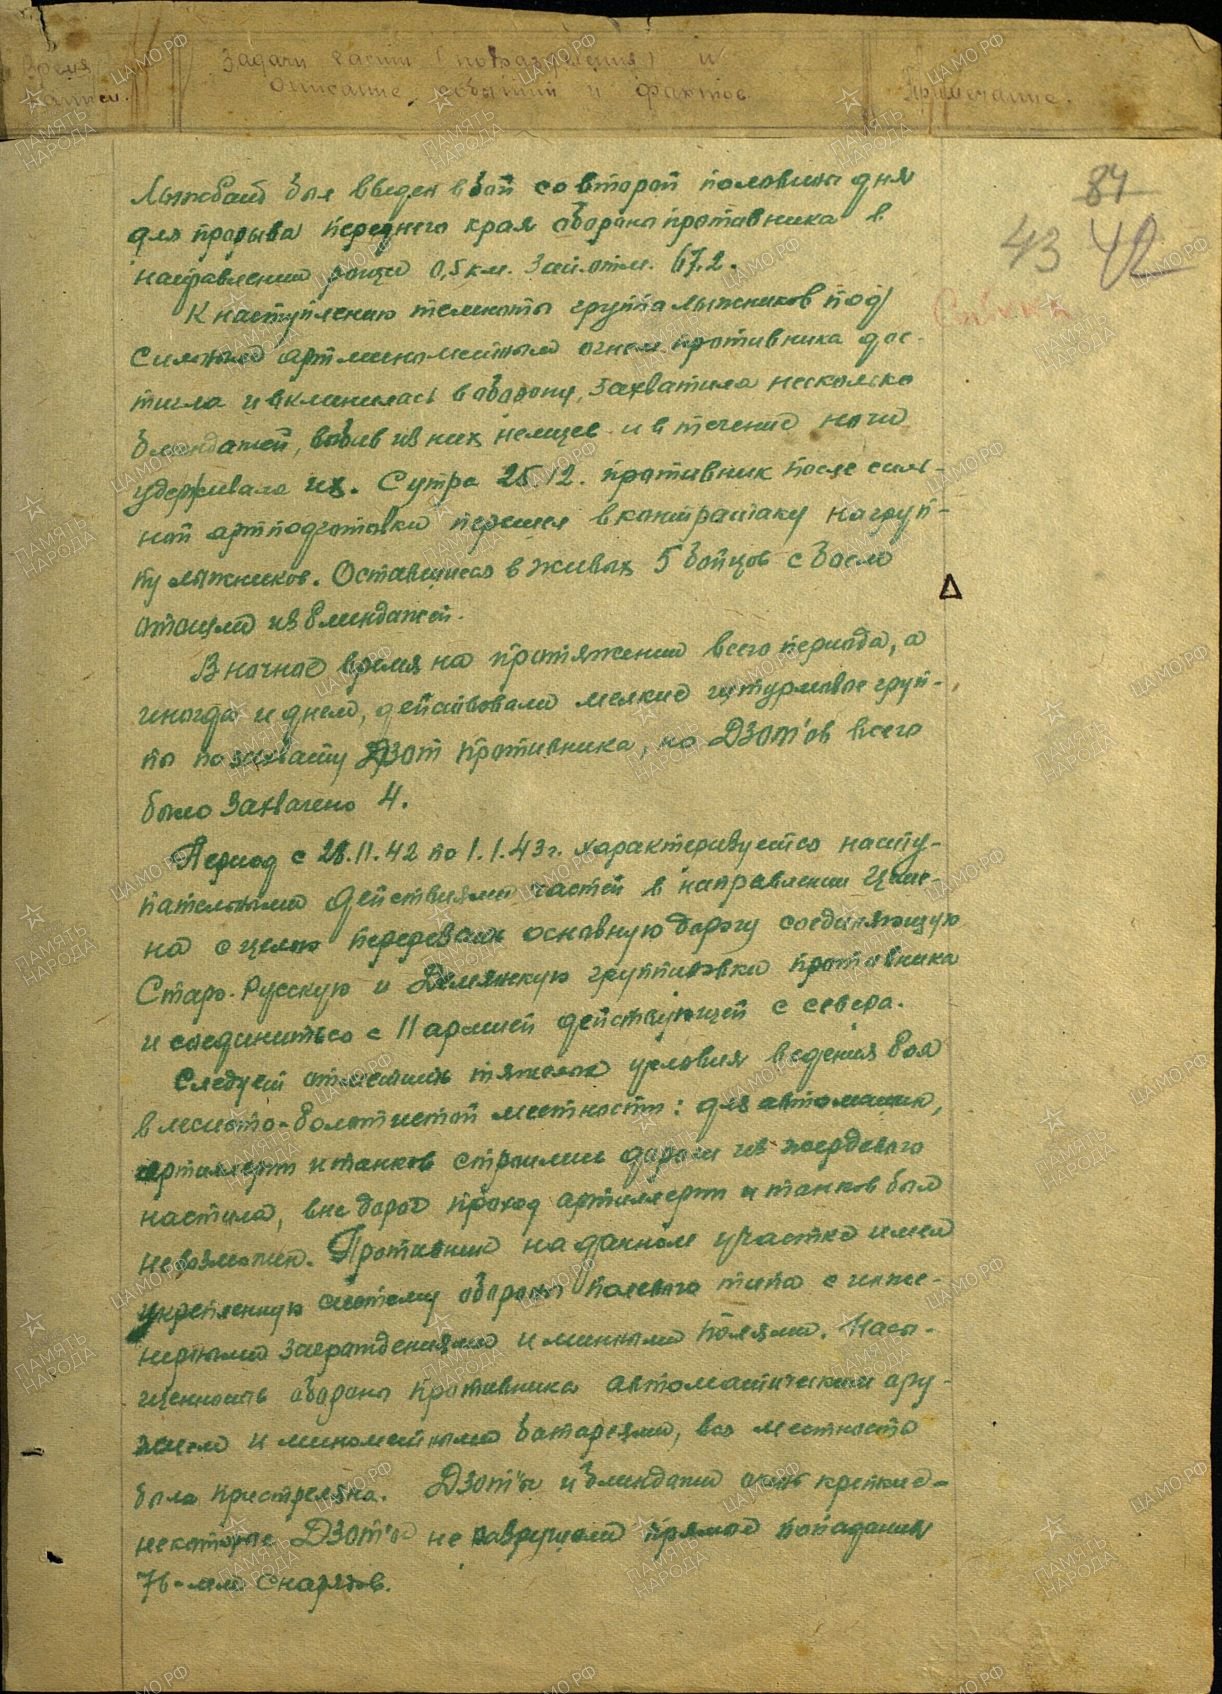 Время
Задачи части (подразделения) и
описание событий и фактов
Примечание.
84
43 42
Лыжбат был введен в бой со второй половины дня
для прорыва переднего края обороны противника в
направлении рощи 0,5 км. Зап. отм. 67.2.
К наступлению темноты группа лыжников под
сильным артминометным огнем противника дос-
тигла и вклинилась в оборону, захватила несколько
блиндажей, выбив из них немцев и в течение ночи
удерживала их. С утра 25.12. противник после силь-
ной артподготовки перешел в контратаку на груп-
пу лыжников. Оставшиеся в живых 5 бойцов с боем
отошли из блиндажей.
В ночное время на протяжении всего периода, а
иногда и днем, действовали мелкие штурмовые груп-
пы по захвату Дзот противника, но ДЗОТ'ов всего
было захвачено 4.
Период с 28.11.42 по 1.1.43 г. характеризуется насту-
пательными действиями частей в направлении Цеме-
на с целью перерезать основную дорогу соединяющую
Старо-Русскую и Демянскую группировки противника
и соединиться с 11 армией действующей с севера.
Следует отметить тяжелые условия ведения боя
в лесисто-болотистой местности: для автомашин,
артиллерии и танков строились дороги из жердевого
настила, вне дорог проход артиллерии и танков был
невозможен. Противник на данном участке имел
укрепленную систему обороны полевого типа с инже-
нерными заграждениями и минными полями. Насы-
щенность обороны противника автоматическим ору-
жием и минометными батареями, вся местность
была пристреляна. ДЗОТ'ы и блиндажи очень крепкие-
некоторые ДЗОТ'ы не разрушали прямое попадание
76-мм снарядов.
Δ
ЦАМО.РФ
ПАМЯТЬ
НАРОДА